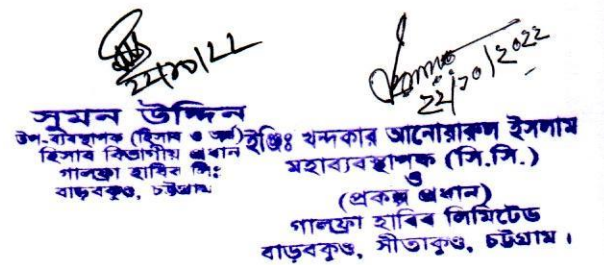 22/10/22
সুমন উদ্দিন
উপ-ব্যবস্থাপক (হিসাব ও অর্থ)
হিসাব বিভাগীয় প্রধান
গালফ্রা হাবিব লিঃ
বাড়বকুণ্ড, চট্টগ্রাম
22/10/2022
ইঞ্জিঃ খন্দকার আনোয়ারুল ইসলাম
মহাব্যবস্থাপক (সি.সি.)
ও
(প্রকল্প প্রধান)
গালফ্রা হাবিব লিমিটেড
বাড়বকুণ্ড, সীতাকুণ্ড, চট্টগ্রাম।